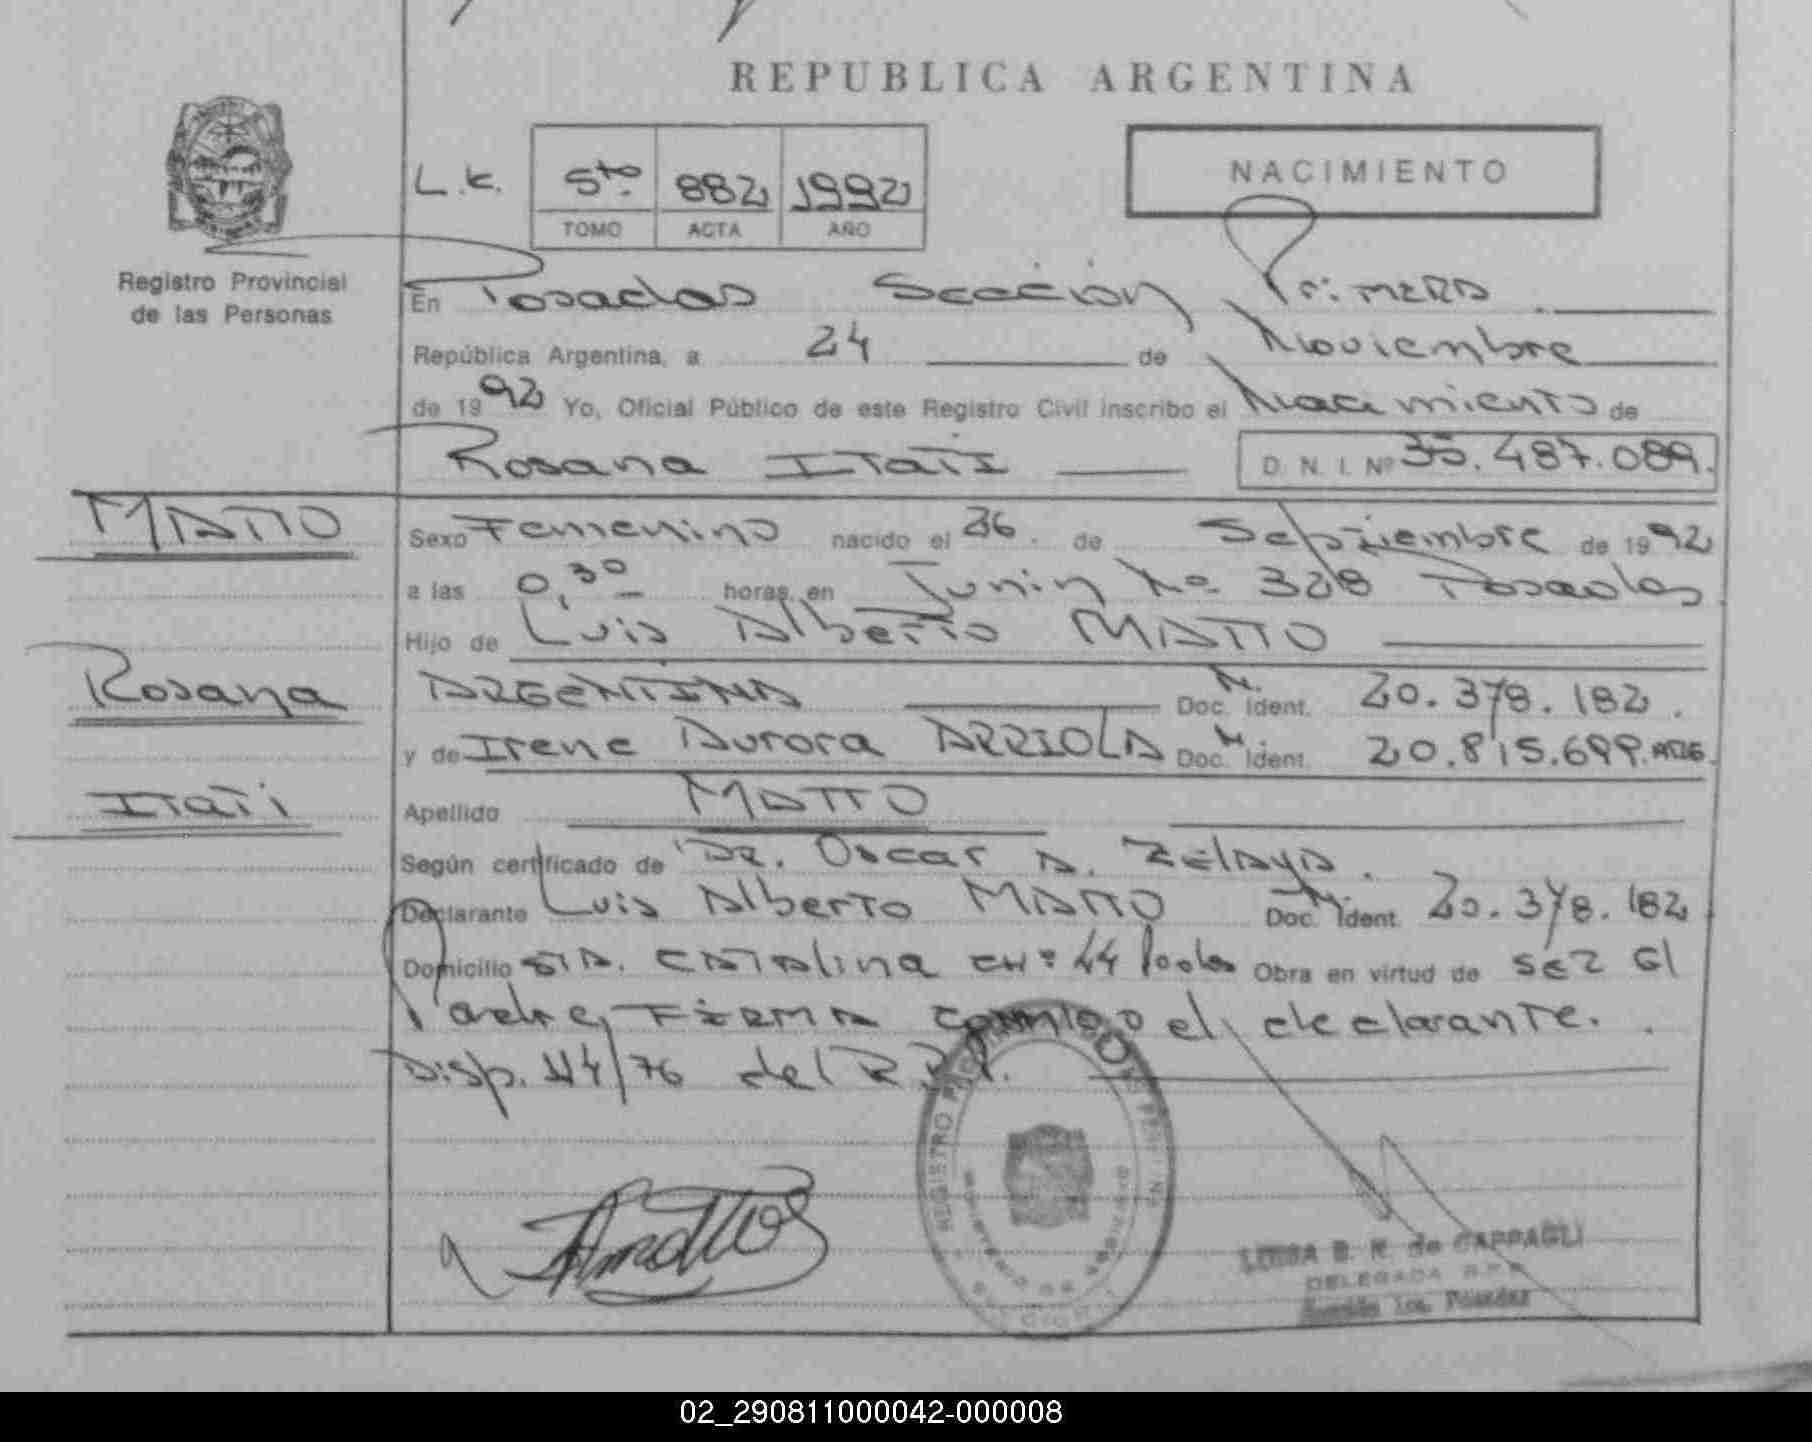 REPUBLICA ARGENTINA
L.K. 5to 882 1992
TOMO ACTA AÑO
NACIMIENTO
Registro Provincial
de las Personas
En Posadas Sección Primera
República Argentina, a 24 de Noviembre
de 1992 Yo, Oficial Público de este Registro Civil inscribo el Nacimiento de
Rosana Itatí D. N. I. Nº 35.487.089.
MATTO
Sexo Femenino nacido el 26. de Septiembre de 1992
a las 0,30 horas, en Junin No 328 Posadas
Hijo de Luis Alberto MATTO
Rosana
ARGENTINA Doc. N. Ident. 20.378.182.
y de Irene Aurora ARRIOLA Doc. N. Ident. 20.815.699. ARG.
Itatí
Apellido MATTO
Según certificado de DR. Oscar A. Zelaya.
Declarante Luis Alberto MATTO Doc. N. Ident. 20.378.182
Domicilio STA. Catalina CH: 44 Podas Obra en virtud de SER El
Padre, FIRMA conmigo el declarante.
Disp. 114/76 del R.P.P.
REGISTRO
LUISA B. R. de CAPPAGLI
DELEGADA R.P.P.
Sección 1ra. Posadas
02_290811000042-000008